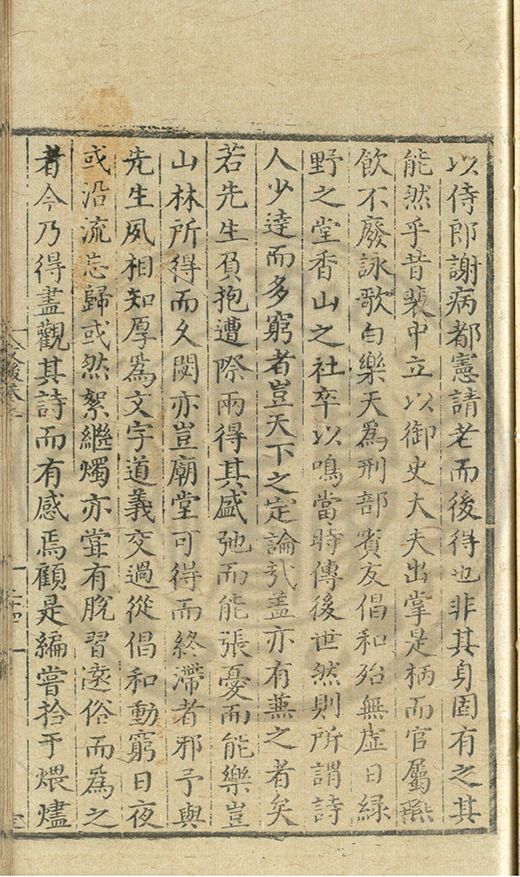 以侍郎謝病都憲請老而後得也非其身固有之其
能然乎昔裴中立以御史大夫出掌是柄而官屬燕
飲不廢詠歌白樂天爲刑部賓友倡和殆無虛日緑
野之堂香山之社卒以鳴當時傳後世然則所謂詩
人少達而多窮者豈天下之定論㢤盖亦有兼之者矣
若先生負抱遭際兩得其盛弛而能張憂而能樂豈
山林所得而久閟亦豈廟堂可得而終滯者邪予與
先生夙相知厚爲文字道義交過從倡和動窮日夜
或沿流忘歸或然絮繼燭亦嘗有脫習遠俗而爲之
者今乃得盡觀其詩而有感焉顧是編嘗拾于煨燼
二十四